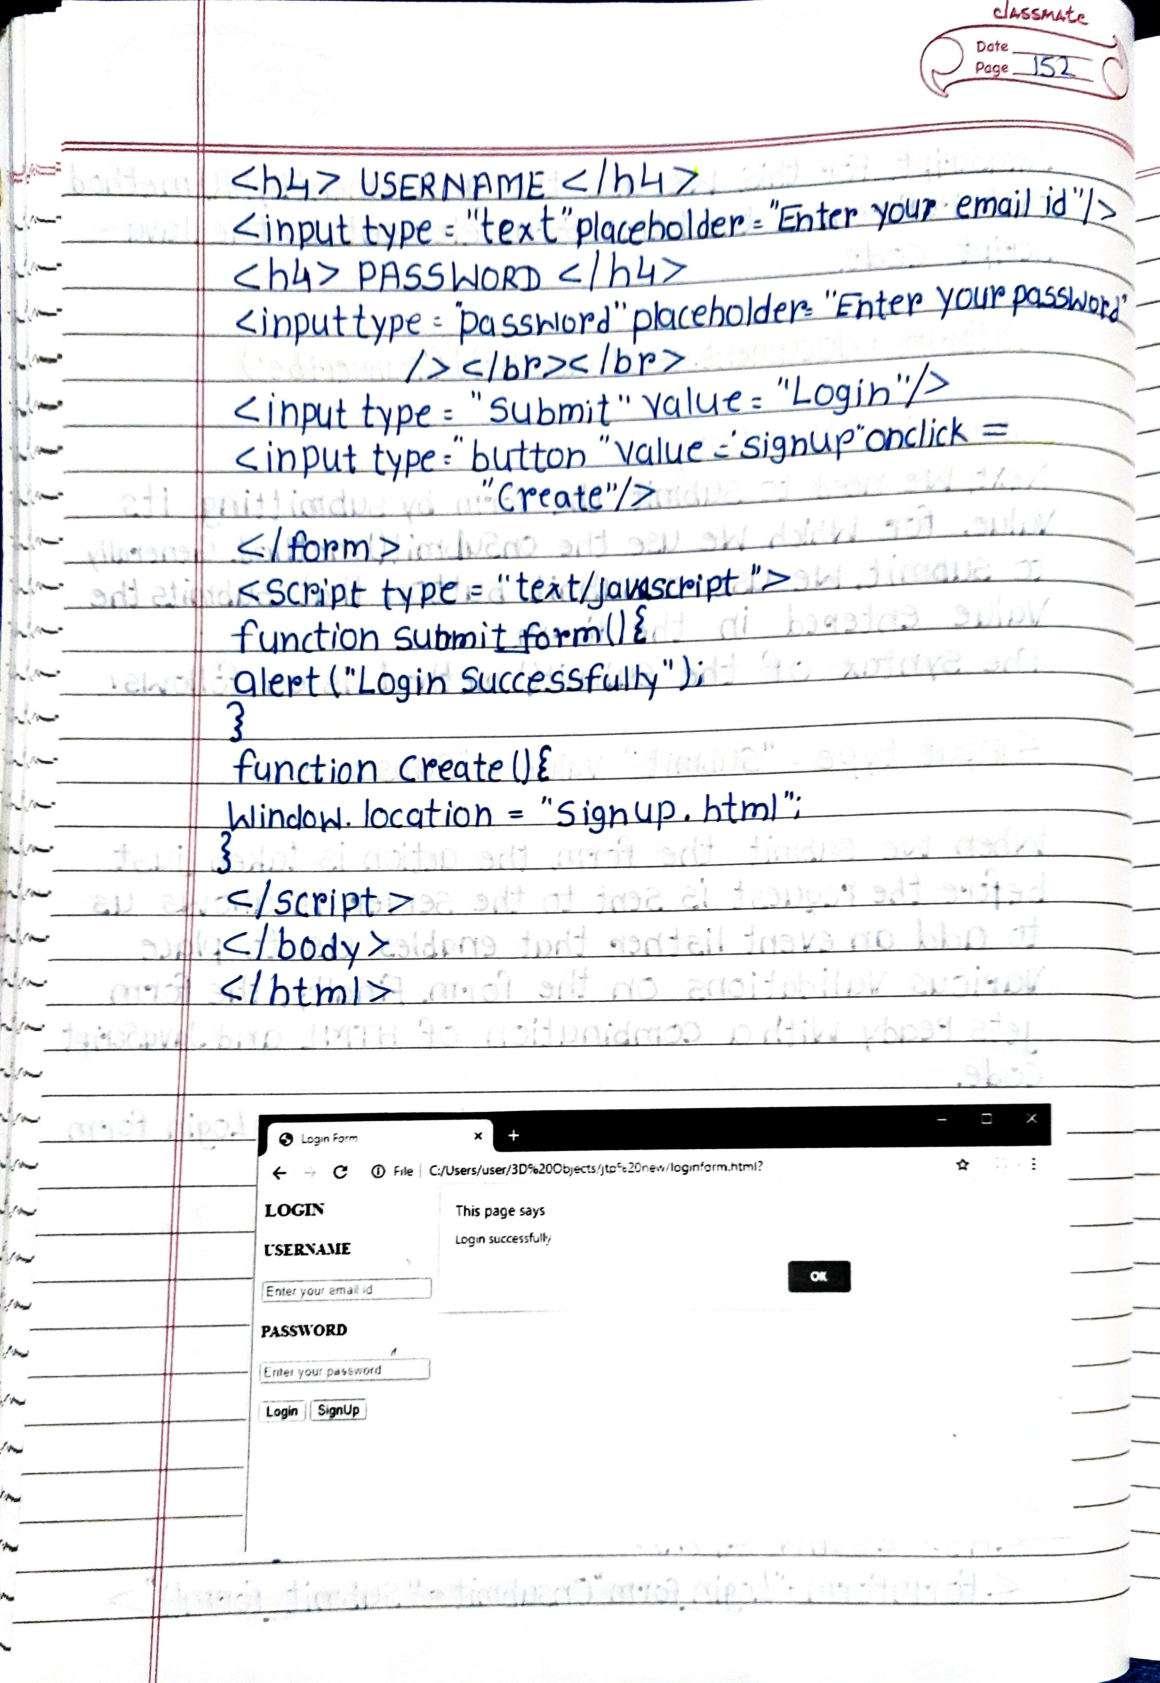 classmate
Date
Page 152
<h4> USERNAME </h4>
<input type = "text" placeholder = "Enter your email id"/>
<h4> PASSWORD </h4>
<input type = "password" placeholder = "Enter your password"
/></br></br>
<input type = "submit" value = "Login"/>
<input type = "button" value = "signup" onclick =
"Create"/>
</form>
<Script type = "text/javascript">
function submit_form(){
alert("Login Successfully");
}
function create(){
Window.location = "Signup.html";
}
</script>
</body>
</html>
Login Form
File C:/Users/user/3D%20Objects/jtp%20new/loginform.html?
LOGIN
This page says
Login successfully
USERNAME
OK
Enter your email id
PASSWORD
Enter your password
Login SignUp